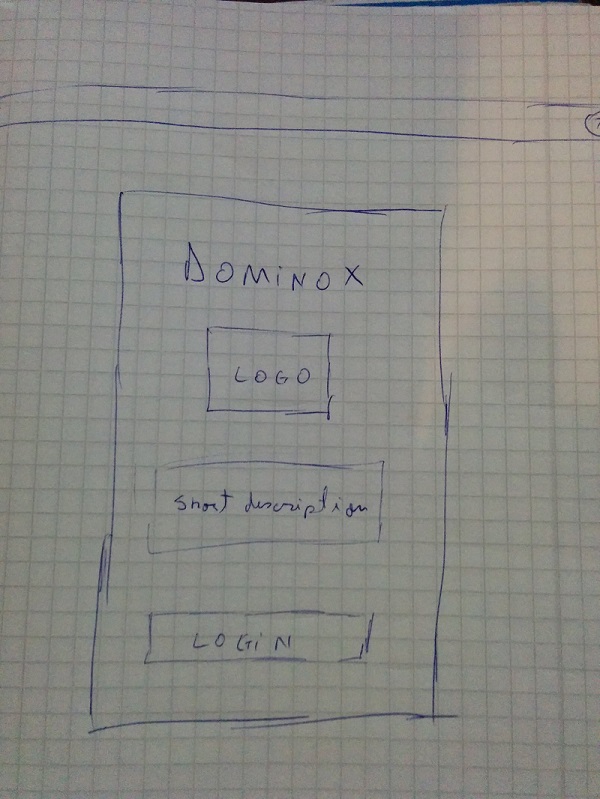 DOMINOX
LOGO
short description
LOGIN